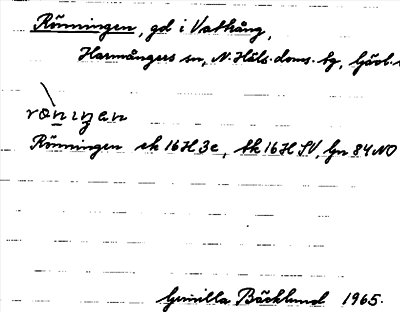 Rönningen, gd i Vattrång,
Harmångers sn, N. Häls. doms. tg, Gävl.
rönıŋen
Rönningen ek 16H3c, tk 16H SV, Gn 84 NO
Gunilla Bäcklund 1965.